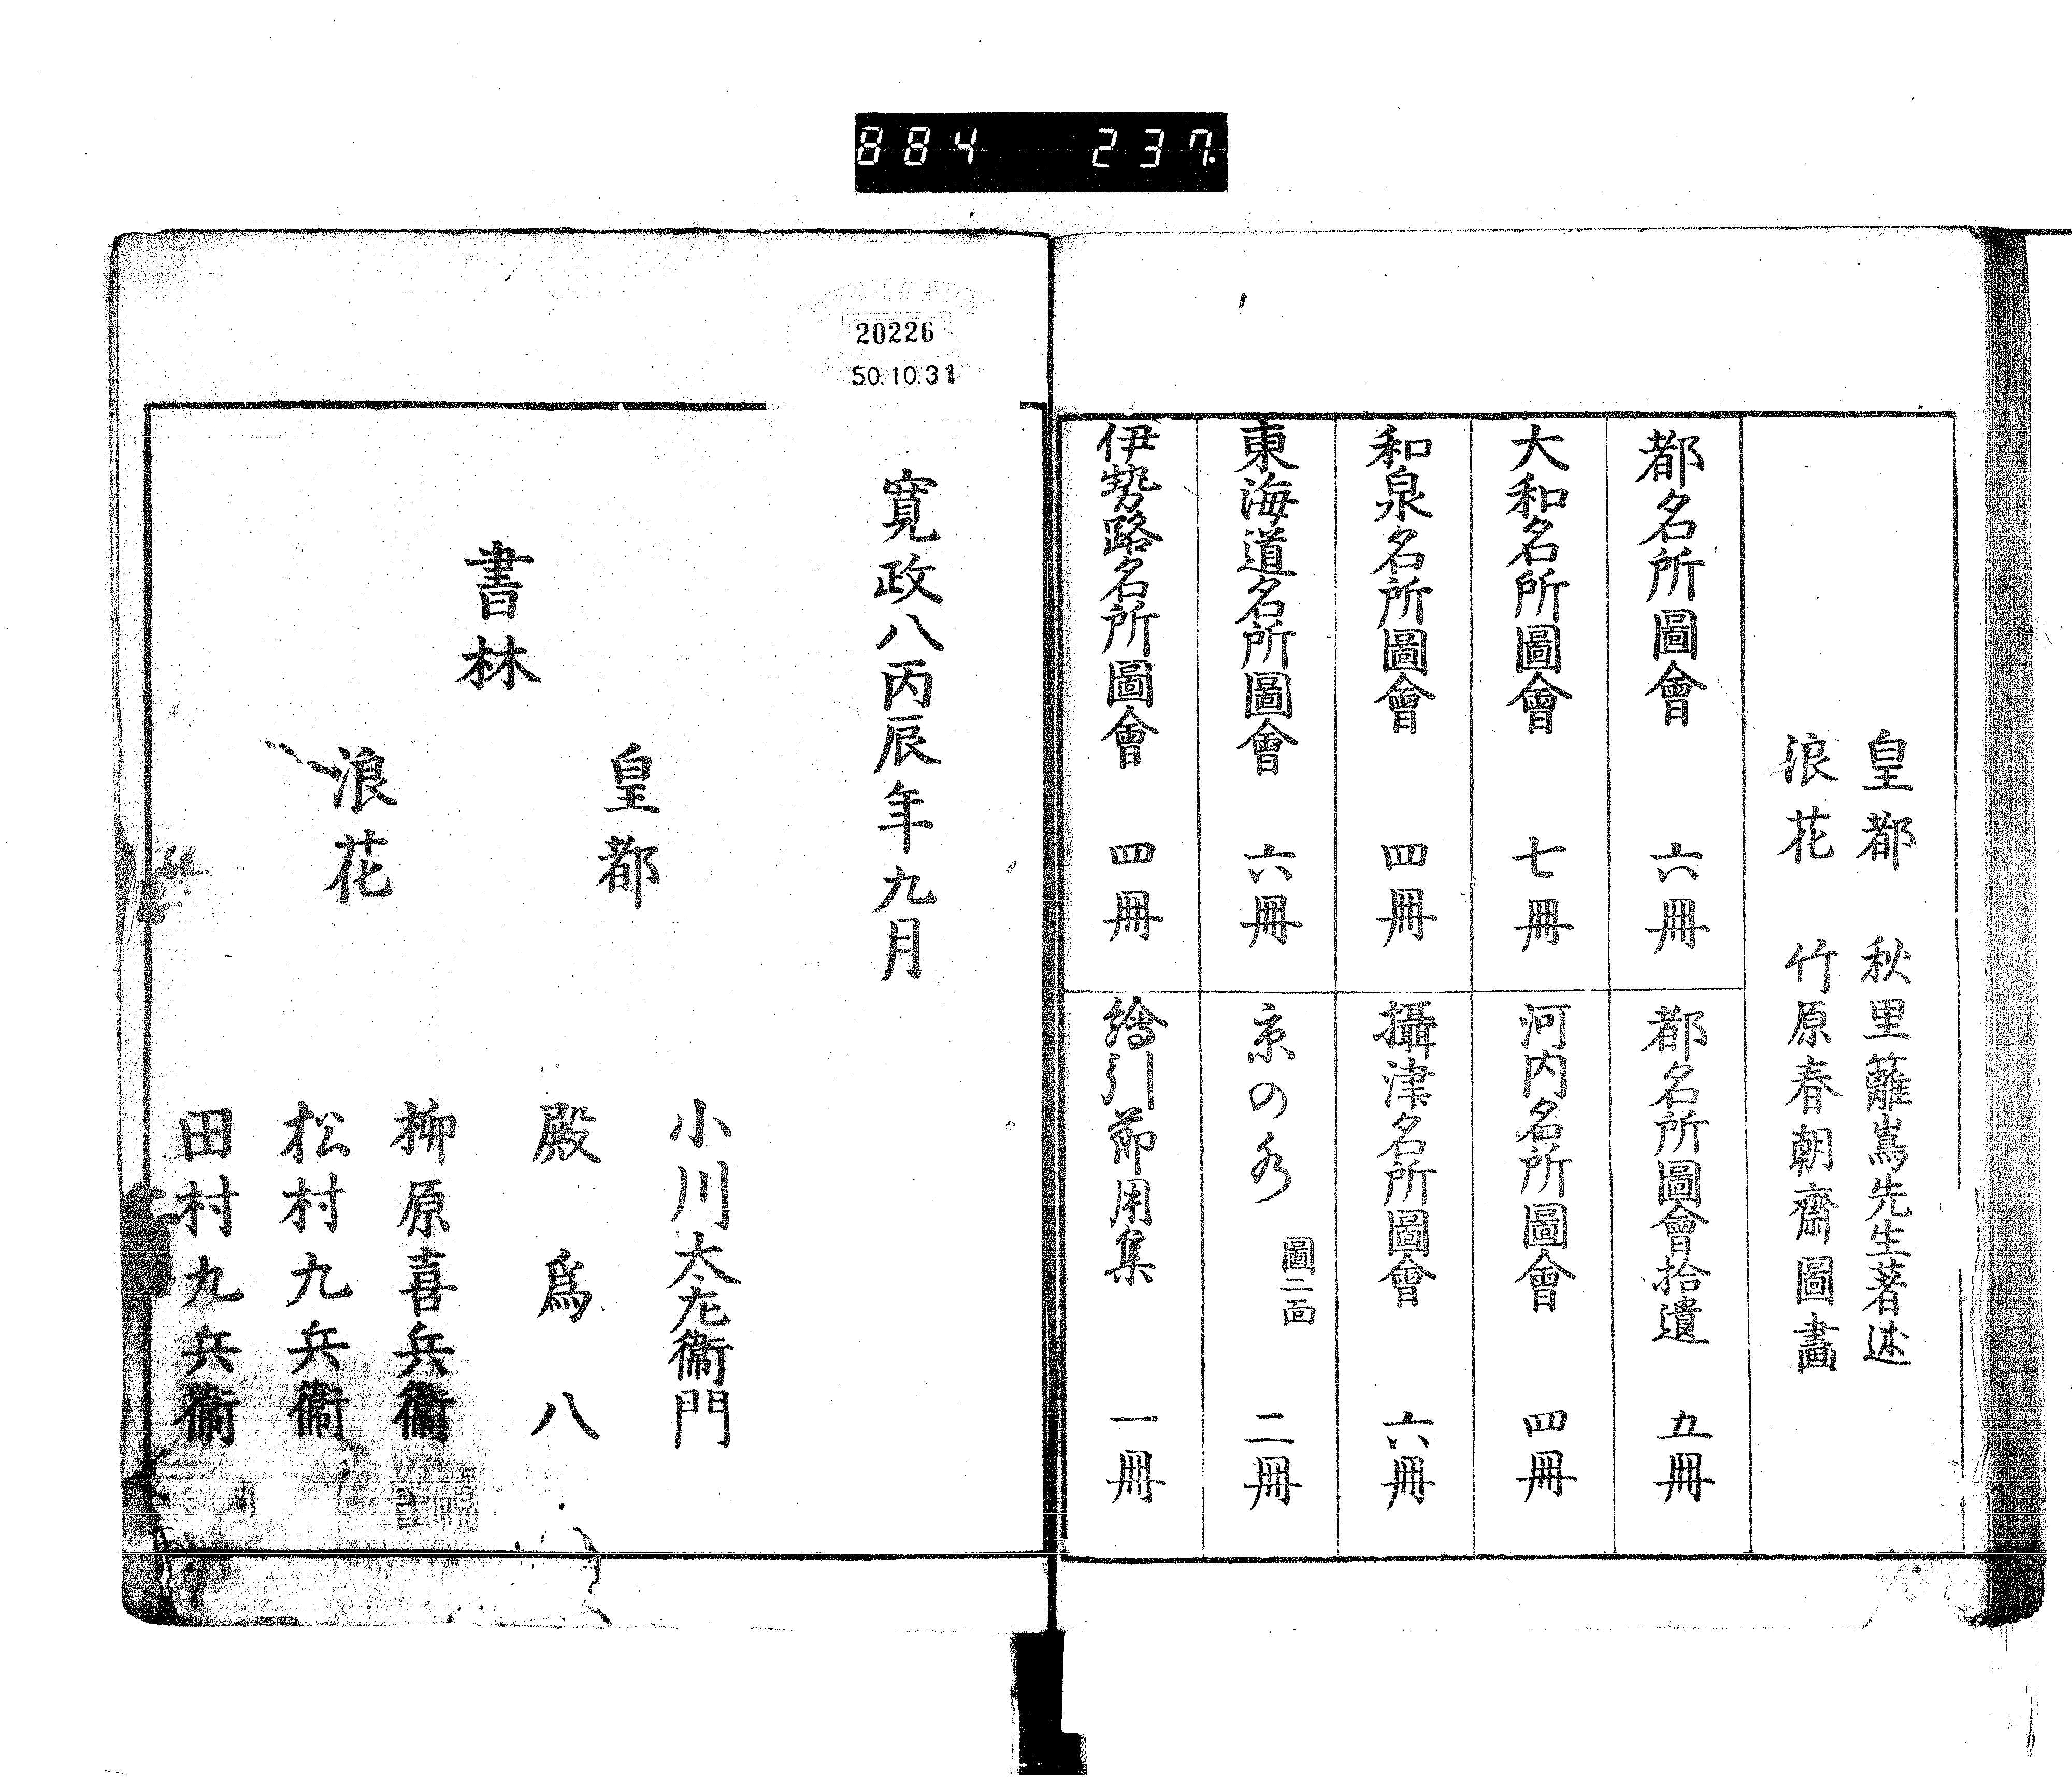 884 237.
皇都 秋里籬嶌先生著述
浪花 竹原春朝齋圖畫
都名所圖會 六冊
都名所圖會拾遺 五冊
大和名所圖會 七冊
河内名所圖會 四冊
和泉名所圖會 四冊
攝津名所圖會 六冊
東海道名所圖會 六冊
京の水 圖二面 二冊
伊勢路名所圖會 四冊
繪引節用集 一冊
20226
50.10.31
寛政八丙辰年九月
書林
皇都
小川太左衞門
殿爲八
浪花
柳原喜兵衞
松村九兵衞
田村九兵衞